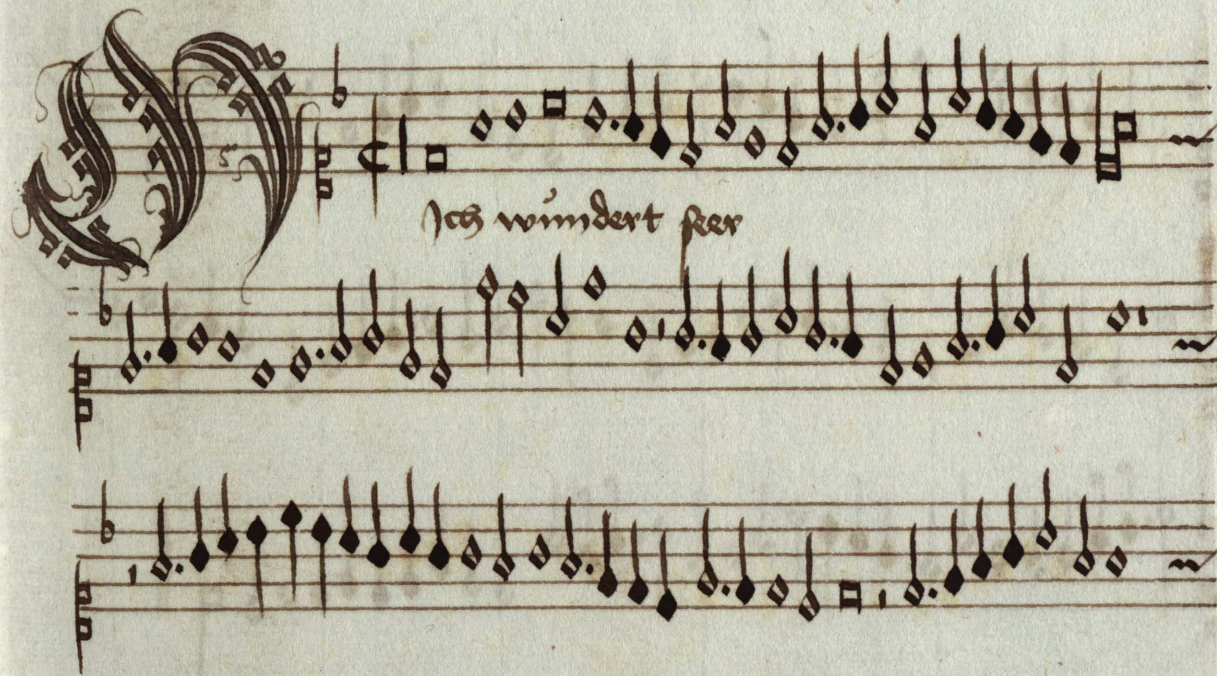 M
Ich wundert seer